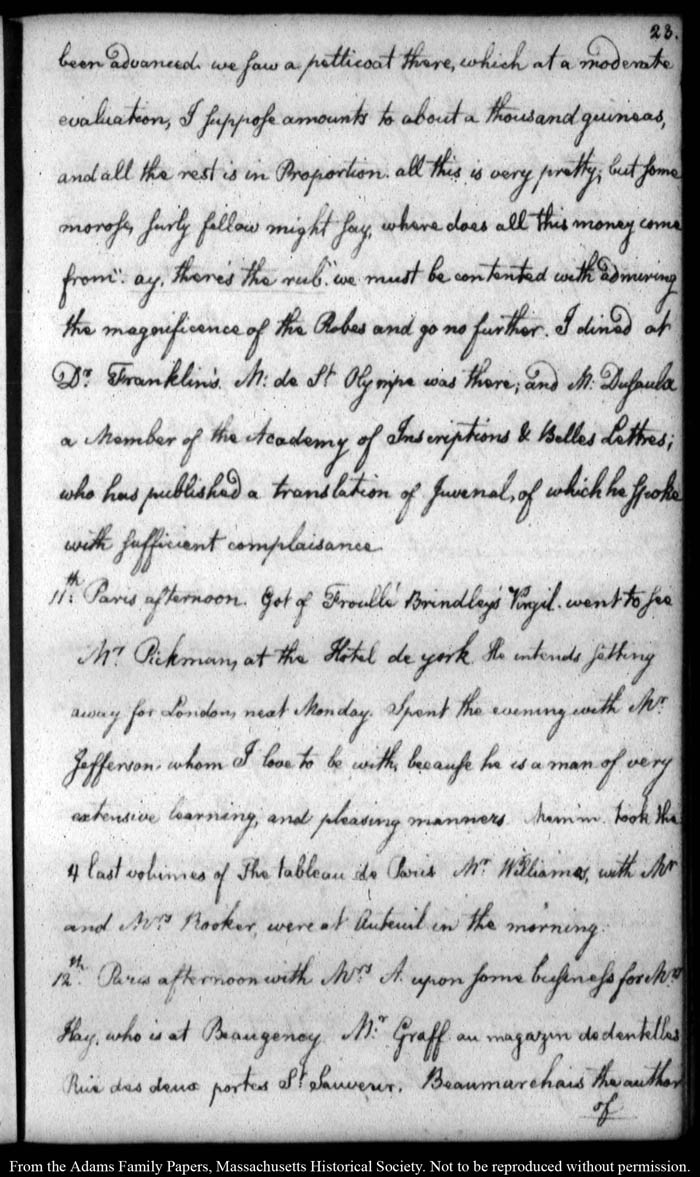 23.
been advanced. we saw a petticoat there, which at a moderate
evaluation, I suppose amounts to about a thousand guineas,
and all the rest is in Proportion. all this is very pretty; but some
morose, surly fellow might say, where does all this money come
from". ay, there's the rub". we must be contented with admiring
the magnificence of the Robes and go no further. I dined at
Dr. Franklin's. M: de St Olympe was there; and M: Dusaulx
a Member of the Academy of Inscriptions & Belles Lettres;
who has published a translation of Juvenal, of which he spoke
with sufficient complaisance
11th: Paris afternoon. Got of Froullé Brindley's Virgil. went to see
Mr Pickman, at the Hotel de york. He intends setting
away for London, next Monday. Spent the evening with Mr.
Jefferson. whom I love to be with, because he is a man of very
extensive learning, and pleasing manners. Mem'm. took the
4 last volumes of The tableau de Paris Mr Williamos, with Mr
and Mrs Rooker, were at Auteuil in the morning.
12th. Paris afternoon with Mrs A. upon some business for Mrs
Hay, who is at Beaugency. Mr: Graff au magazin de dentelles
Rüe des deux portes St Sauveur. Beaumarchais the author
of
From the Adams Family Papers, Massachusetts Historical Society. Not to be reproduced without permission.